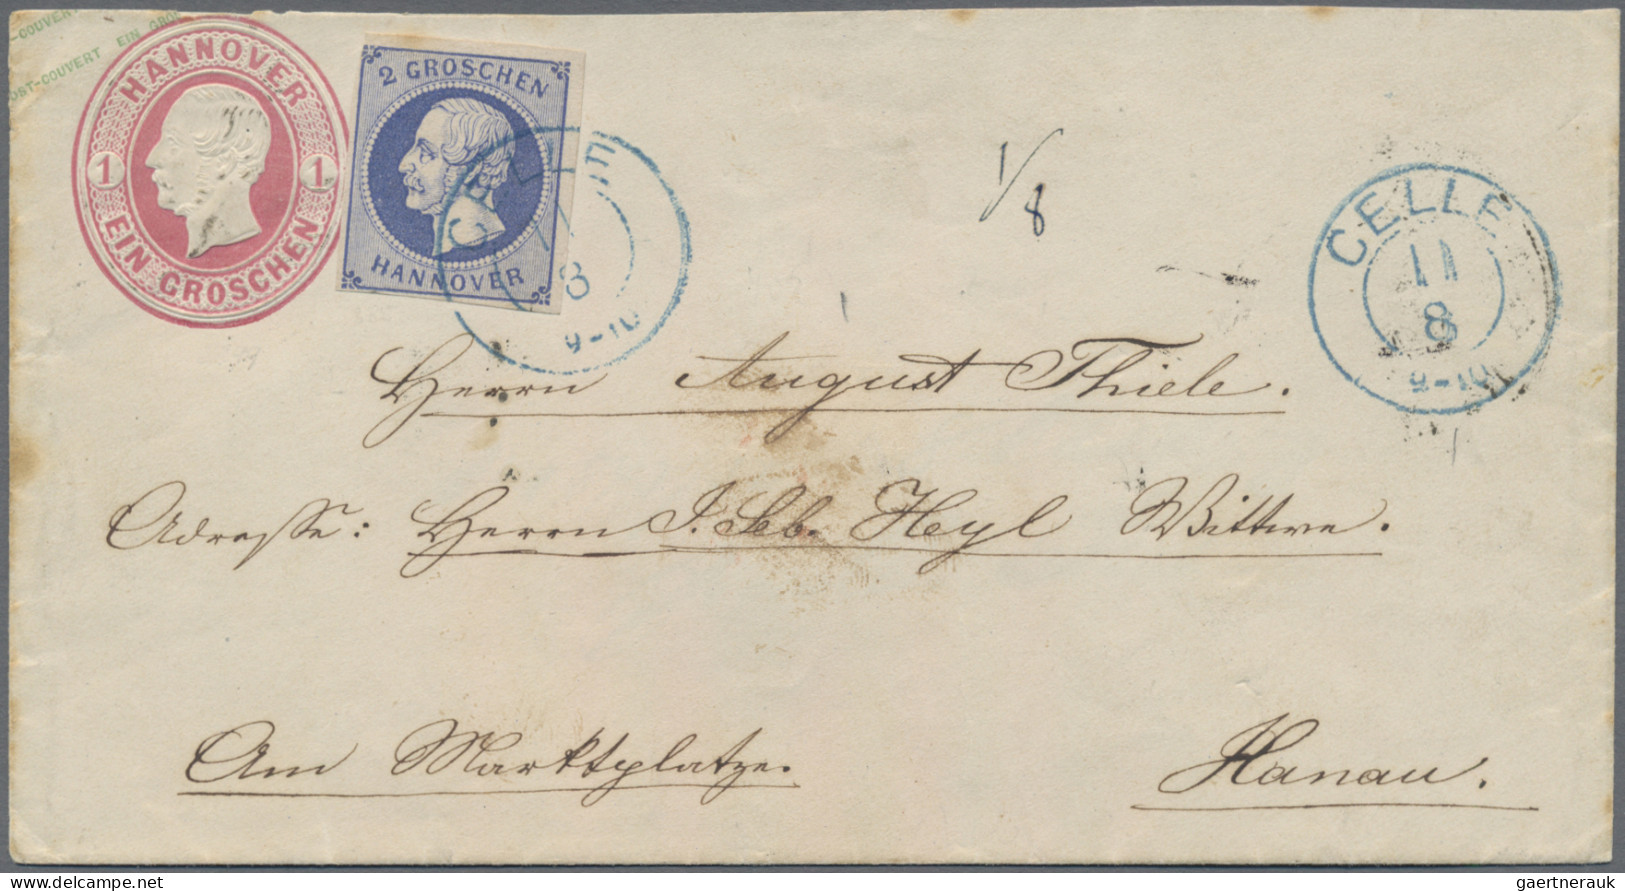 POST-COUVERT EIN GROS
OST-COUVERT
HANNOVER
1 1
EIN GROSCHEN
2 GROSCHEN
HANNOVER
CELLE
11
8
9-10
1/8
CELLE
11
8
9-10
Herrn August Thiele.
Adresse: Herrn J. Seb. Heyl Wittwe.
Am Marktplatze. Hanau.
gaertnerauk